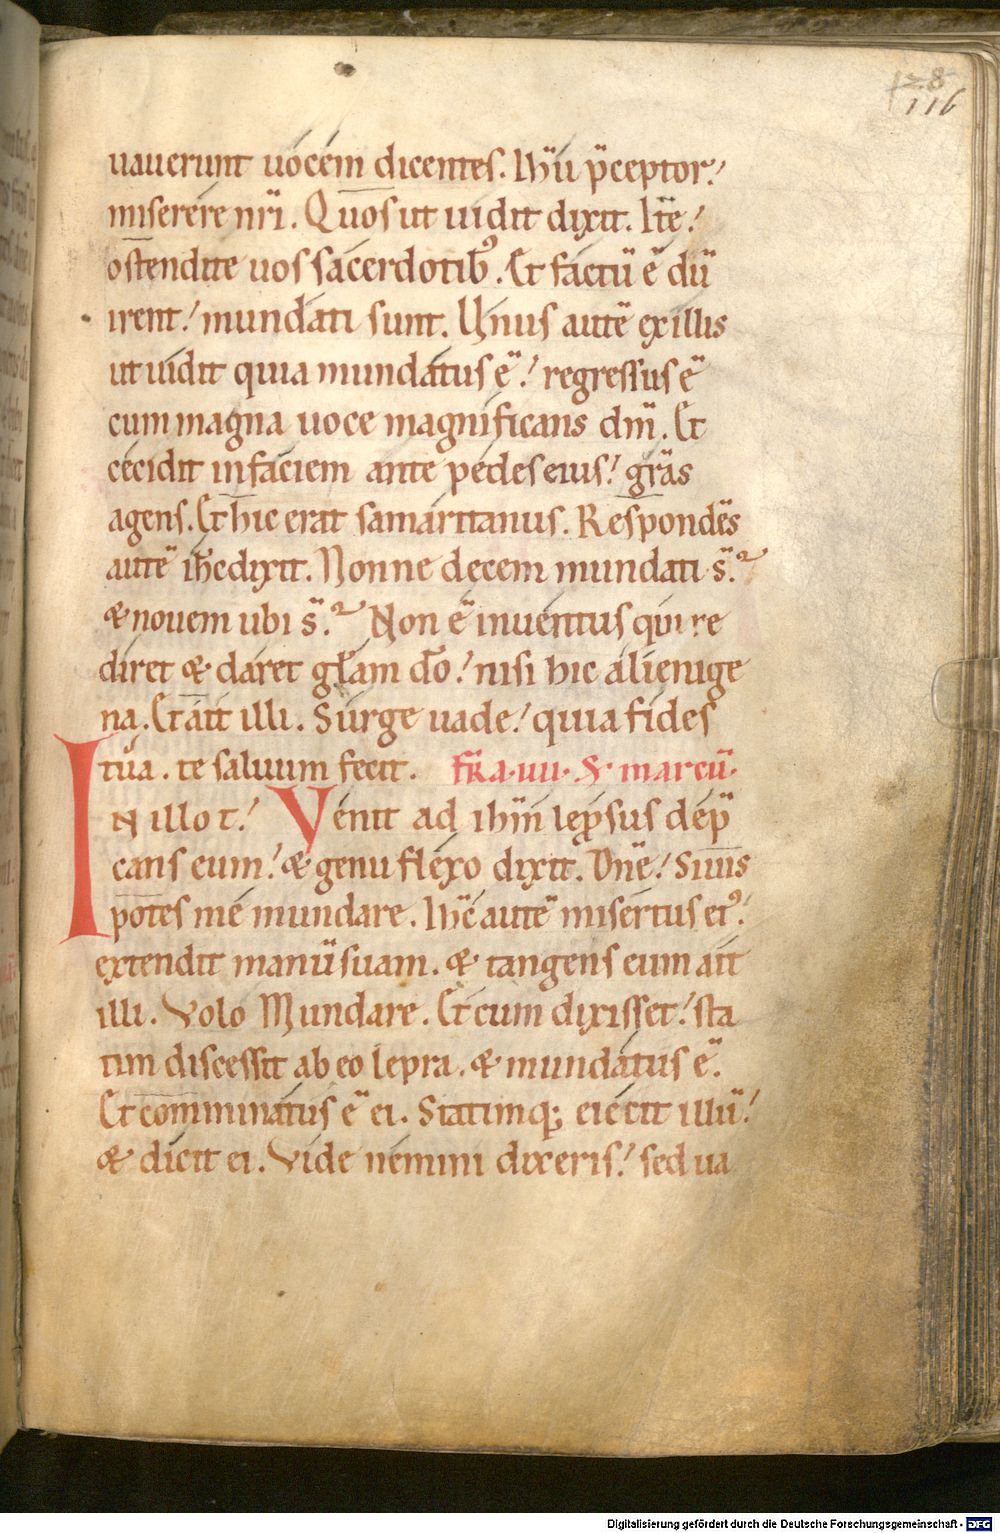 128
116
uauerunt uocem dicentes. Ihu̅ p̅ceptor.
miserere nr̅i. Quos ut uidit dixit. Ite.
ostendite uos sacerdotib; Et factu̅ e̅ du̅
irent. mundati sunt. Unus aute̅ ex illis
ut uidit quia mundatus e̅. regressus e̅
cum magna uoce magnificans dm̅. Et
cecidit in faciem ante pedes eius. gr̅as
agens. Et hic erat samaritanus. Responde̅s
aute̅ ih̅c dixit. Nonne decem mundati s̅.
& nouem ubi s̅. Non e̅ inuentus qui re
diret & daret gl̅am do̅. nisi hic alienige
na. Et ait illi. Surge uade. quia fides
tua. te saluum fecit. fr̅a. uii. S. marcu̅.
IN illo t. Venit ad ihm̅ leprosus dep̅
cans eum. & genu flexo dixit. Dn̅e. Si uis
potes me mundare. Ih̅c aute̅ misertus ei᷒.
extendit manu̅ suam. & tangens eum ait
illi. Volo Mundare. Et cum dixisset. sta
tim discessit ab eo lepra. & mundatus e̅.
Et comminatus e̅ ei. Statimq; eiecit illu̅.
& dicit ei. Vide nemini dixeris. sed ua
Digitalisierung gefördert durch die Deutsche Forschungsgemeinschaft - DFG